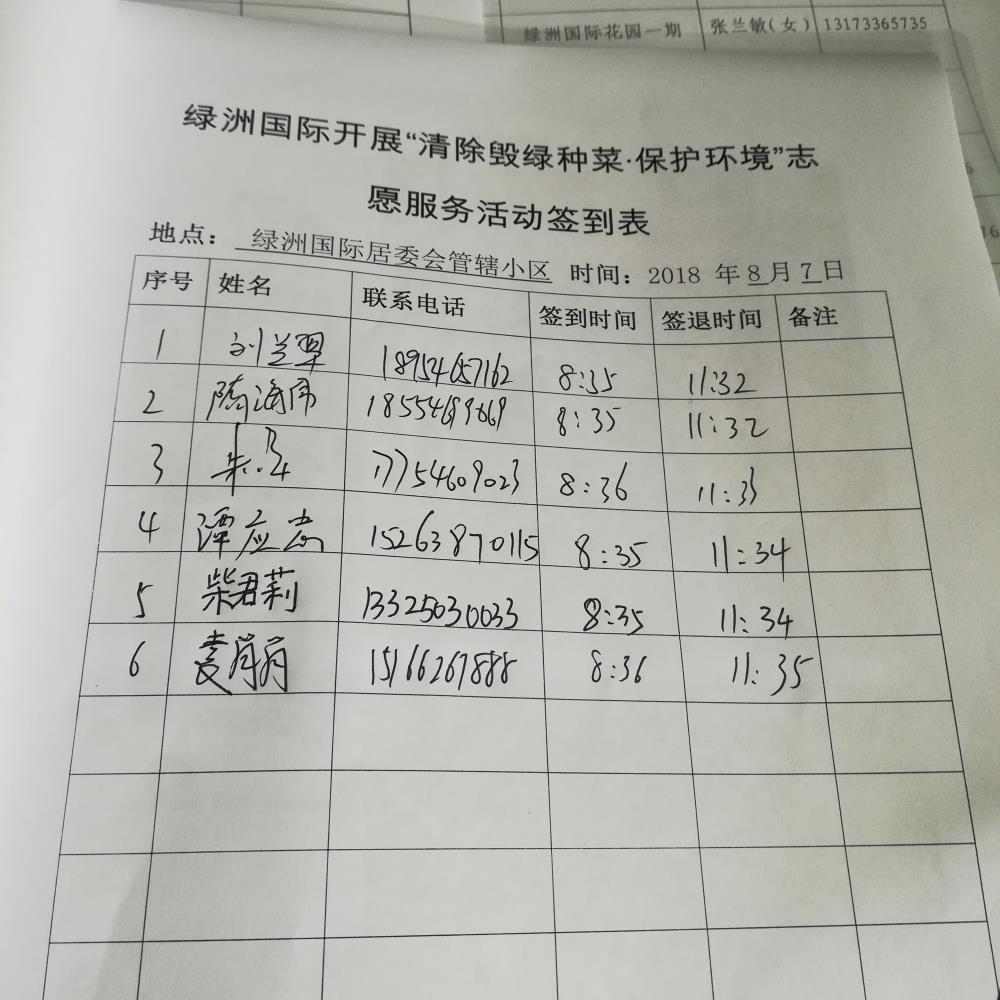 绿洲国际花园一期 张兰敏(女) 13173365735
绿洲国际开展“清除毁绿种菜·保护环境”志
愿服务活动签到表
地点： 绿洲国际居委会管辖小区 时间：2018 年 8 月 7 日
序号 姓名 联系电话 签到时间 签退时间 备注
1 刘兰翠 18954657162 8:35 11:32
2 陈海伟 8:35 11:32
3 17754609023 8:36 11:33
4 谭应志 15263870115 8:35 11:34
5 柴君莉 13325030033 8:35 11:34
6 袁娟娟 15166267888 8:36 11:35